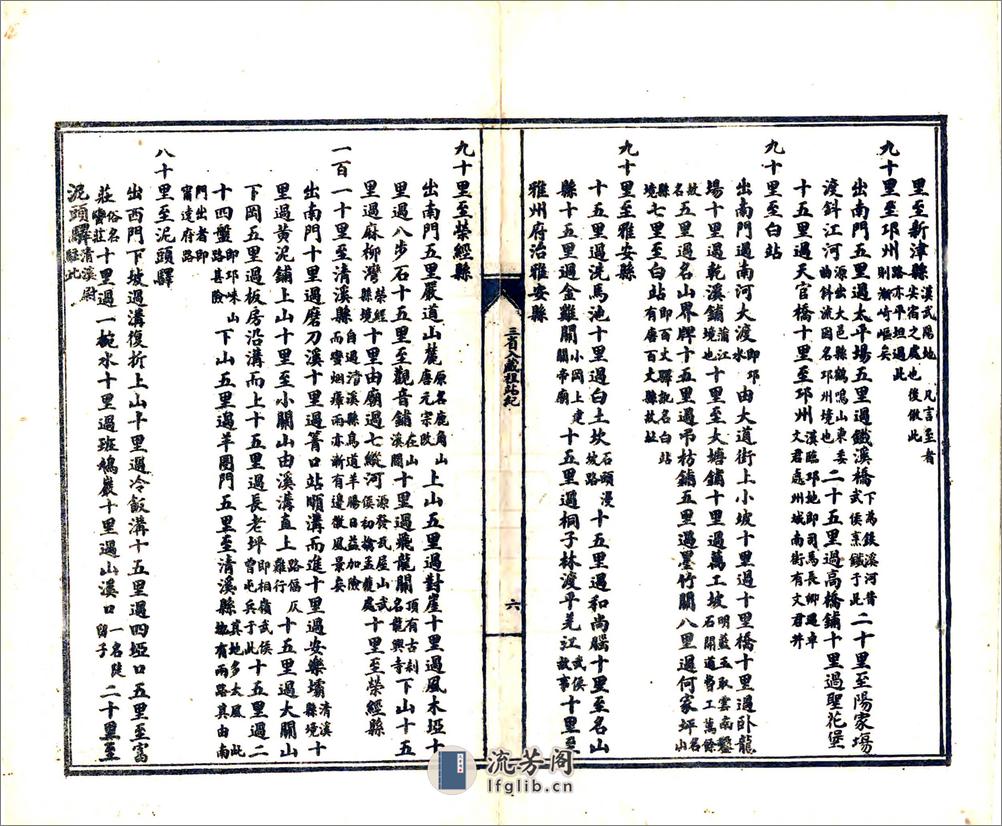 里至新津縣漢武陽地　凡言至者尖宿之處也後倣此
九十里至邛州路亦平坦過此則漸崎嶇矣
出南門五里過太平場五里過鐵溪橋下為鐵溪河昔武侯烹鐵于此二十里至陽家場
渡斜江河源出大邑縣鶴鳴山東委曲斜流因名邛州境也二十五里過高橋鋪十里過聖花堡
十五里過天官橋十里至邛州漢臨邛地即司馬長卿過卓文君處州城南街有文君井
九十里至白站
出南門過南河大渡即邛水由大道街上小坡十里過十里橋十里過卧龍
場十里過乾溪鋪蒲江境也十里至大塘鋪十里過萬工坡明藍玉取雲南鑿石開道費工萬餘
故名五里過名山界牌十五里過吊枋鋪五里過墨竹關八里過何家坪名山
縣境七里至白站即百丈驛訛名白站有唐百丈縣故址
九十里至雅安縣
十五里過洗馬池十里過白土坎石頭漫坡路十五里過和尚腦十里至名山
縣十五里過金雞關小岡上建關帝廟十五里過桐子林渡平羌江武侯故事十里至
雅州府治雅安縣
三省入藏程站紀
六
九十里至榮經縣
出南門五里嚴道山麓原名鹿角山唐元宗改上山五里過對崖十里過風木埡十
里過八步石十五里至觀音鋪在山溪間十里過飛龍關頂有古剎名龍興寺下山十五
里過麻柳灣榮經縣境十里由廟過七縱河源發瓦屋山武侯初擒孟獲處十里至榮經縣
一百一十里至清溪縣自過清溪縣鳥道羊腸日益加險而蠻烟瘴雨亦漸有邊徼風景矣
出南門十里過磨刀溪十里過箐口站順溝而進十里過安樂壩清溪縣境十
里過黃泥鋪上山十里至小關山由溪溝直上路偪仄難行十五里過大關山
下岡五里過板房沿溝而上十五里過長老坪即相嶺武侯曾屯兵于此十五里過二
十四盤即邛崍山路甚險下山五里過羊圈門五里至清溪縣其地多大風此地有兩路其由南
門出者即甯遠府路
八十里至泥頭驛
出西門下坡過溝復折上山十里過冷飯溝十五里過四埡口五里至富
莊俗名蠻莊十里過一椀水十里過班鳩巖十里過山溪口一名陡留子二十里至
泥頭驛清溪尉駐此
流芳阁
lfglib.cn